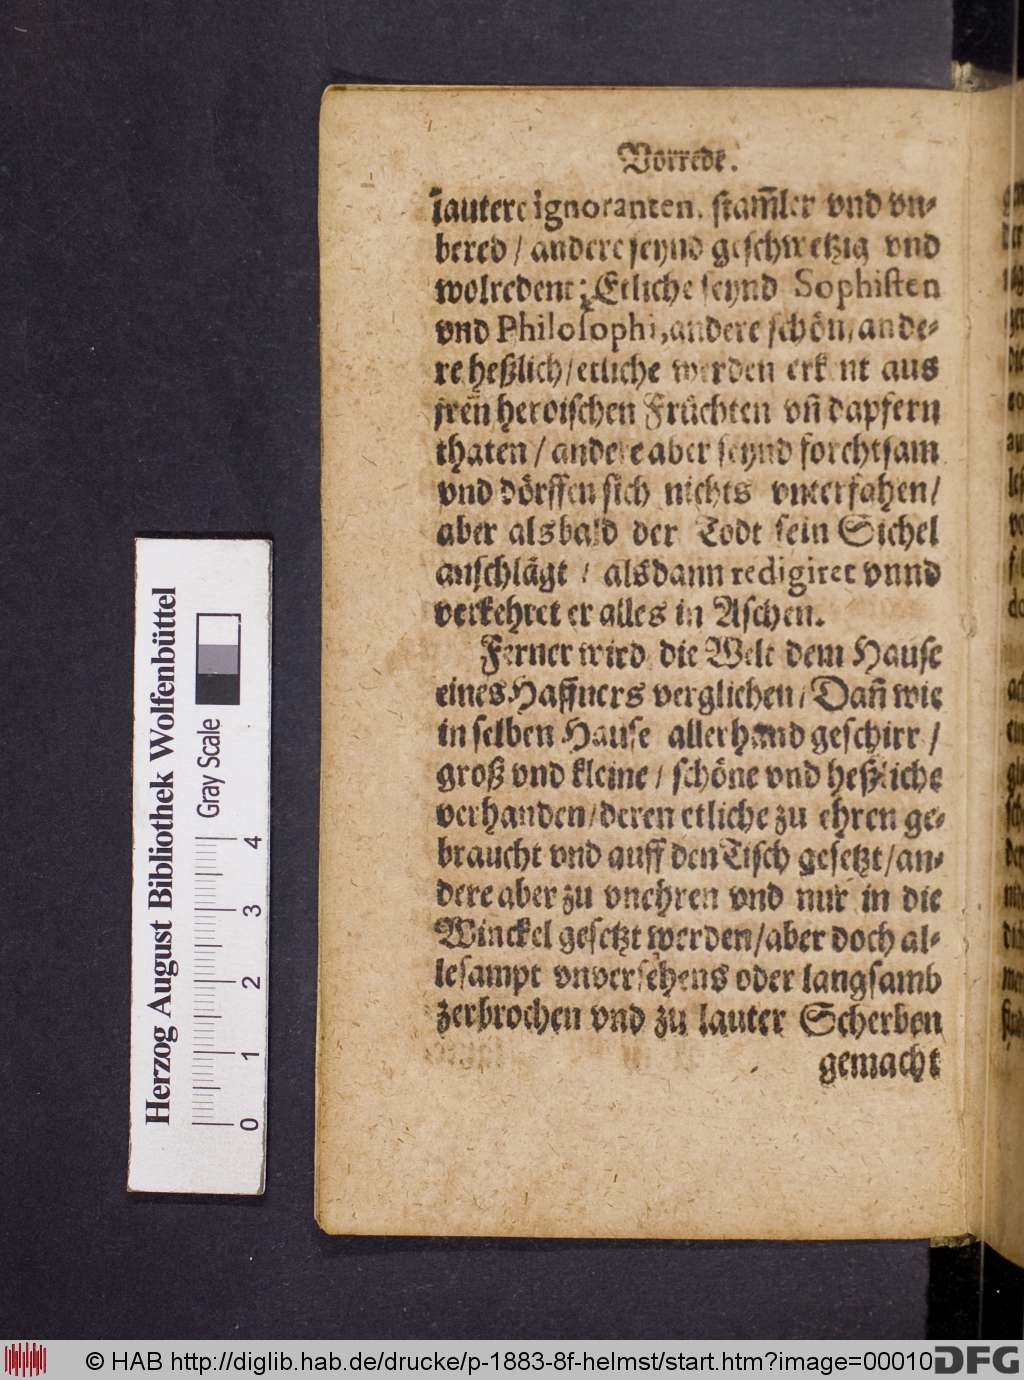 Vorrede.
lautere ignoranten, stam̃ler vnd vn-
bered / andere seynd geschwetzig vnd
wolredent; Etliche seynd Sophisten
vnd Philosophi, andere schön / ande-
re heßlich / etliche werden erkent aus
jren heroischen Früchten vñ dapfern
thaten / andere aber seynd forchtsam
vnd dörffen sich nichts vnterfahen /
aber alsbald der Todt sein Sichel
anschlägt / alsdann redigiret vnnd
verkehret er alles in Aschen.
Ferner wird die Welt dem Hause
eines Haffners verglichen / Dañ wie
in selben Hause allerhand geschirr /
groß vnd kleine / schöne vnd heßliche
verhanden / deren etliche zu ehren ge-
braucht vnd auff den Tisch gesetzt / an-
dere aber zu vnehren vnd nur in die
Winckel gesetzt werden / aber doch al-
lesampt vnversehens oder langsamb
zerbrochen vnd zu lauter Scherben
gemacht
Herzog August Bibliothek Wolfenbüttel
Gray Scale
0 1 2 3 4
© HAB http://diglib.hab.de/drucke/p-1883-8f-helmst/start.htm?image=00010
DFG